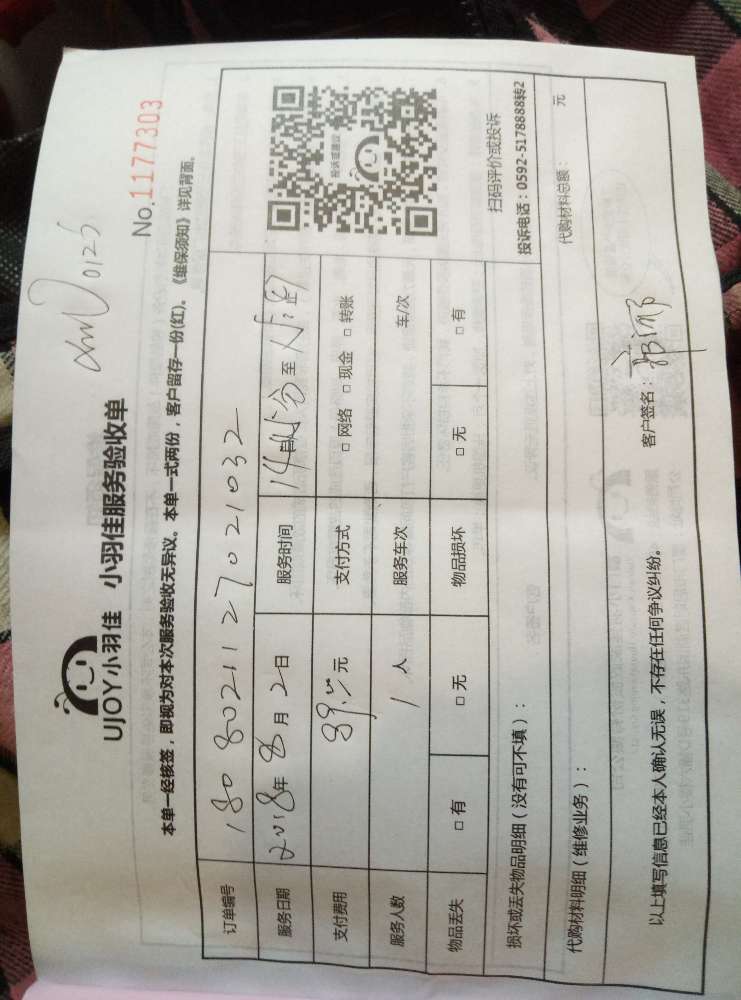 0125
No.1177303
UJOY小羽佳 小羽佳服务验收单
本单一经核签，即视为对本次服务验收无异议。本单一式两份，客户留存一份(红)。《维保须知》详见背面。
订单编号 1808021127021032
服务日期 2018年8月2日 服务时间 14时 分至 时
支付费用 元 支付方式 □网络 □现金 □转账
服务人数 1人 服务车次 车/次
物品丢失 □有 □无 物品损坏 □无 □有
投诉或建议
扫码评价或投诉
投诉电话：0592-5178888转2
损坏或丢失物品明细（没有可不填）：
代购材料明细（维修业务）： 代购材料总额： 元
以上填写信息已经本人确认无误，不存在任何争议纠纷。 客户签名：